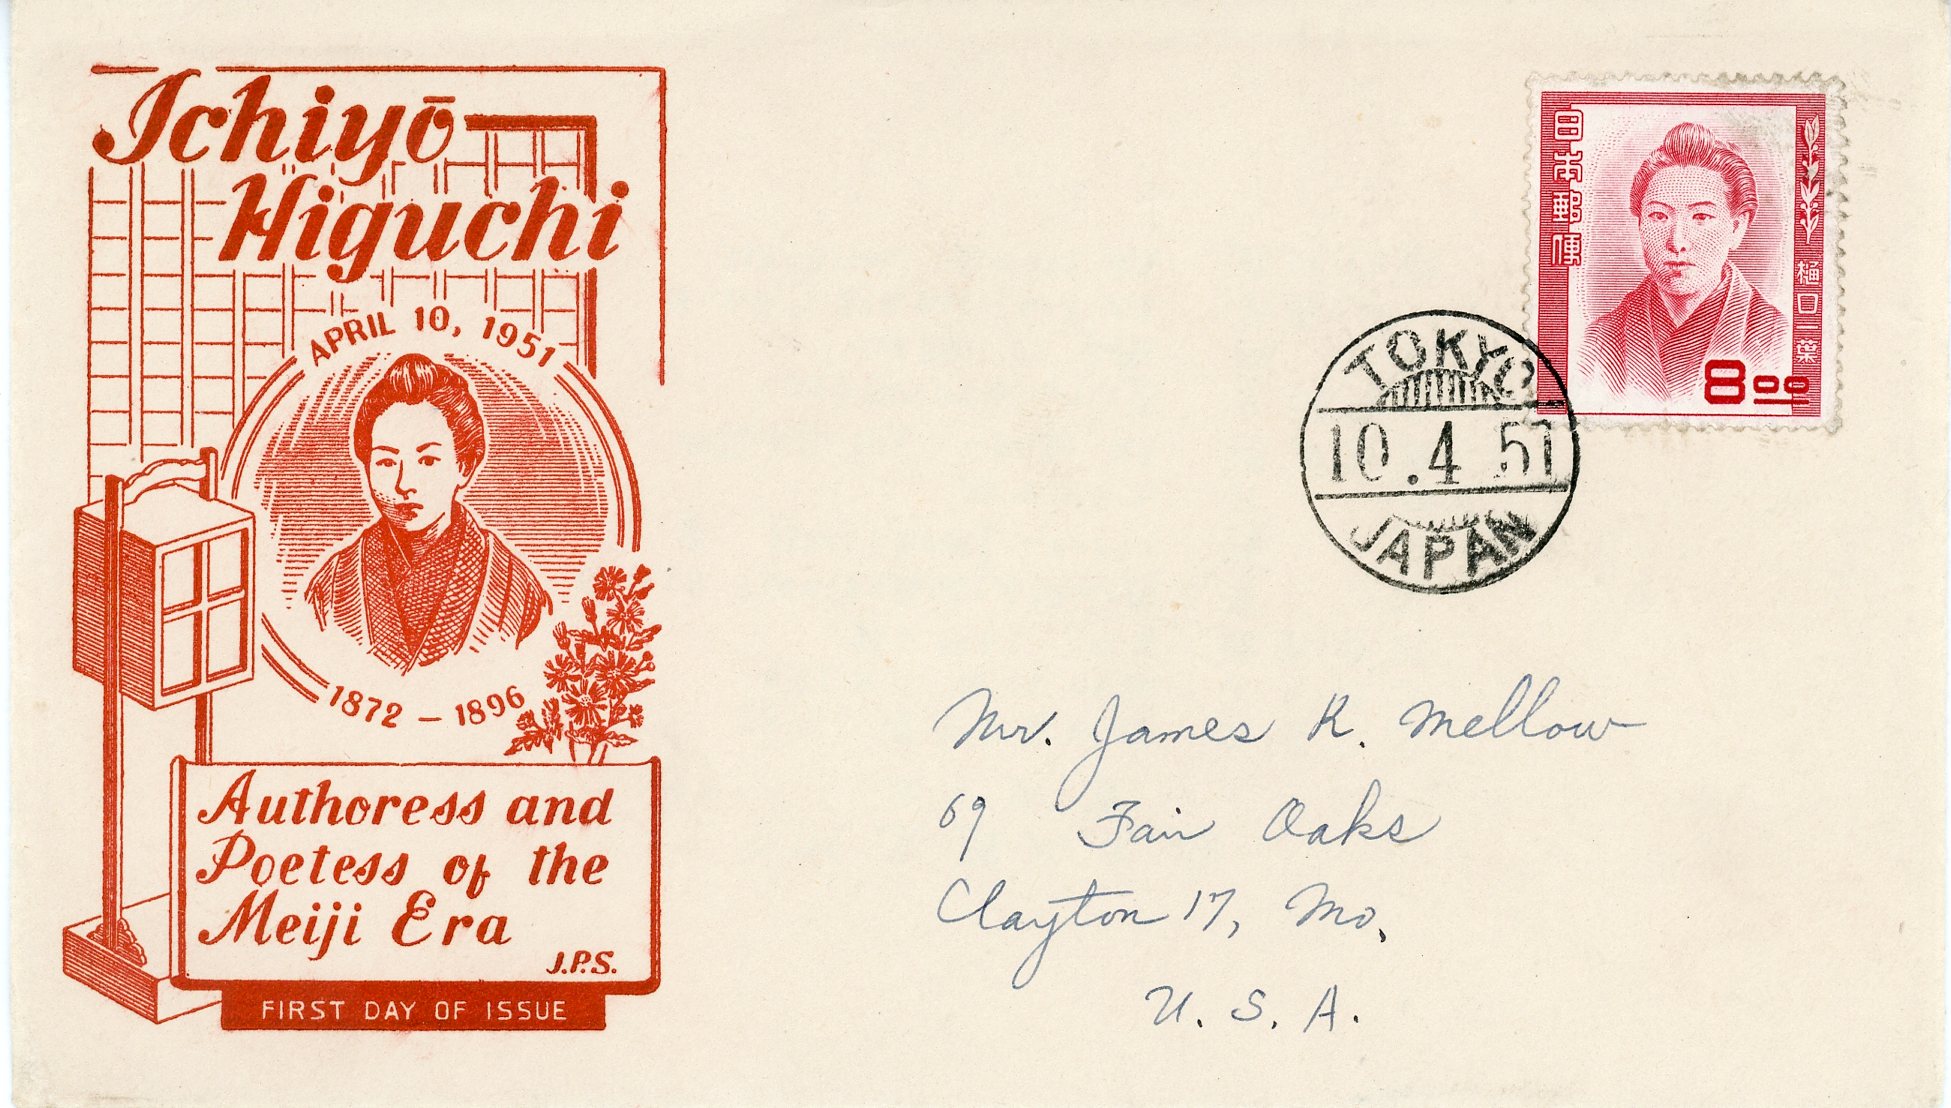 Ichiyō
Higuchi
APRIL 10, 1951
1872 – 1896
Authoress and
Poetess of the
Meiji Era
J.P.S.
FIRST DAY OF ISSUE
日本郵便
樋口一葉
8.00
TOKYO
10.4 51
JAPAN
Mr. James K. Mellow
69 Fair Oaks
Clayton 17, Mo.
U. S. A.